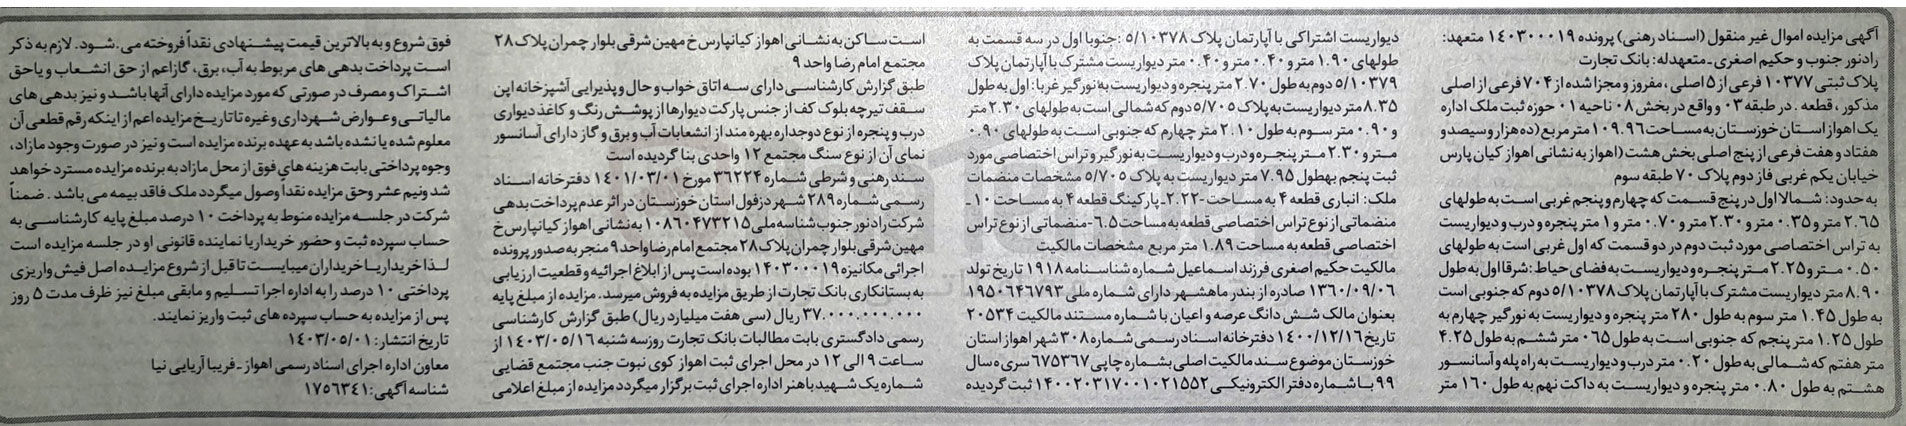 آگهی مزایده اموال غیر منقول (اسناد رهنی) پرونده ۱۴۰۳۰۰۰۱۹ متعهد:
رادنور جنوب و حکیم اصغری - متعهدله: بانک تجارت
پلاک ثبتی ۱۰۳۷۷ فرعی از ۵ اصلی، مفروز و مجزا شده از ۷۰۴ فرعی از اصلی
مذکور، قطعه . در طبقه ۰۳ و واقع در بخش ۰۸ ناحیه ۰۱ حوزه ثبت ملک اداره
یک اهواز استان خوزستان به مساحت ۱۰۹.۹۶ متر مربع (ده هزار و سیصد و
هفتاد و هفت فرعی از پنج اصلی بخش هشت (اهواز به نشانی اهواز کیان پارس
خیابان یکم غربی فاز دوم پلاک ۷۰ طبقه سوم
به حدود: شمالا اول در پنج قسمت که چهارم و پنجم غربی است به طولهای
۲.۶۵ متر و ۰.۳۵ متر و ۲.۳۰ متر و ۰.۷۰ متر و ۱ متر پنجره و درب و دیواریست
به تراس اختصاصی مورد ثبت دوم در دو قسمت که اول غربی است به طولهای
۰.۵۰ متر و ۲.۲۵ متر پنجره و دیواریست به فضای حیاط: شرقا اول به طول
۸.۹۰ متر دیواریست مشترک با آپارتمان پلاک ۵/۱۰۳۷۸ دوم که جنوبی است
به طول ۱.۴۵ متر سوم به طول ۲۸۰ متر پنجره و دیواریست به نورگیر چهارم به
طول ۱.۲۵ متر پنجم که جنوبی است به طول ۰۶۵ متر ششم به طول ۴.۲۵
متر هفتم که شمالی به طول ۰.۲۰ متر درب و دیواریست به راه پله و آسانسور
هشتم به طول ۰.۸۰ متر پنجره و دیواریست به داکت نهم به طول ۱۶۰ متر
دیواریست اشتراکی با آپارتمان پلاک ۵/۱۰۳۷۸ :جنوبا اول در سه قسمت به
طولهای ۱.۹۰ متر و ۰.۴۰ متر و ۰.۴۰ متر دیواریست مشترک با آپارتمان پلاک
۵/۱۰۳۷۹ دوم به طول ۲.۷۰ متر پنجره و دیواریست به نورگیر غربا: اول به طول
۸.۳۵ متر دیواریست به پلاک ۵/۷۰۵ دوم که شمالی است به طولهای ۲.۳۰ متر
و ۰.۹۰ متر سوم به طول ۲.۱۰ متر چهارم که جنوبی است به طولهای ۰.۹۰
متر و ۲.۳۰ متر پنجره و درب و دیواریست به نورگیر و تراس اختصاصی مورد
ثبت پنجم بهطول ۷.۹۵ متر دیواریست به پلاک ۵/۷۰۵ مشخصات منضمات
ملک: انباری قطعه ۴ به مساحت ۲.۲۲- پارکینگ قطعه ۴ به مساحت ۱۰ -
منضماتی از نوع تراس اختصاصی قطعه به مساحت ۶.۵- منضماتی از نوع تراس
اختصاصی قطعه به مساحت ۱.۸۹ متر مربع مشخصات مالکیت
مالکیت حکیم اصغری فرزند اسماعیل شماره شناسنامه ۱۹۱۸ تاریخ تولد
۱۳۶۰/۰۹/۰۶ صادره از بندر ماهشهر دارای شماره ملی ۱۹۵۰۶۴۶۷۹۳
بعنوان مالک شش دانگ عرصه و اعیان با شماره مستند مالکیت ۲۰۵۳۴
تاریخ ۱۴۰۰/۱۲/۱۶ دفترخانه اسناد رسمی شماره ۳۰۸ شهر اهواز استان
خوزستان موضوع سند مالکیت اصلی بشماره چاپی ۶۷۵۳۶۷ سری ه سال
۹۹ با شماره دفتر الکترونیکی ۱۴۰۰۲۰۳۱۷۰۰۱۰۲۱۵۵۲ ثبت گردیده
است ساکن به نشانی اهواز کیانپارس خ مهین شرقی بلوار چمران پلاک ۲۸
مجتمع امام رضا واحد ۹
طبق گزارش کارشناسی دارای سه اتاق خواب و حال و پذیرایی آشپزخانه اپن
سقف تیرچه بلوک کف از جنس پارکت دیوارها از پوشش رنگ و کاغذ دیواری
درب و پنجره از نوع دوجداره بهره مند از انشعابات آب و برق و گاز دارای آسانسور
نمای آن از نوع سنگ مجتمع ۱۲ واحدی بنا گردیده است
سند رهنی و شرطی شماره ۳۶۲۲۴ مورخ ۱۴۰۱/۰۳/۰۱ دفترخانه اسناد
رسمی شماره ۲۸۹ شهر دزفول استان خوزستان در اثر عدم پرداخت بدهی
شرکت رادنور جنوب شناسه ملی ۱۰۸۶۰۴۷۳۲۱۵ به نشانی اهواز کیانپارس خ
مهین شرقی بلوار چمران پلاک ۲۸ مجتمع امام رضا واحد ۹ منجر به صدور پرونده
اجرائی مکانیزه ۱۴۰۳۰۰۰۱۹ بوده است پس از ابلاغ اجرائیه و قطعیت ارزیابی
به بستانکاری بانک تجارت از طریق مزایده به فروش میرسد. مزایده از مبلغ پایه
۳۷.۰۰۰.۰۰۰.۰۰۰ ریال (سی هفت میلیارد ریال) طبق گزارش کارشناسی
رسمی دادگستری بابت مطالبات بانک تجارت روز سه شنبه ۱۴۰۳/۰۵/۱۶ از
ساعت ۹ الی ۱۲ در محل اجرای ثبت اهواز کوی نبوت جنب مجتمع قضایی
شماره یک شهید باهنر اداره اجرای ثبت برگزار میگردد مزایده از مبلغ اعلامی
فوق شروع و به بالاترین قیمت پیشنهادی نقداً فروخته می شود. لازم به ذکر
است پرداخت بدهی های مربوط به آب، برق، گاز اعم از حق انشعاب و یا حق
اشتراک و مصرف در صورتی که مورد مزایده دارای آنها باشد و نیز بدهی های
مالیاتی و عوارض شهرداری و غیره تا تاریخ مزایده اعم از اینکه رقم قطعی آن
معلوم شده یا نشده باشد به عهده برنده مزایده است و نیز در صورت وجود مازاد،
وجوه پرداختی بابت هزینه های فوق از محل مازاد به برنده مزایده مسترد خواهد
شد و نیم عشر و حق مزایده نقداً وصول میگردد ملک فاقد بیمه می باشد . ضمناً
شرکت در جلسه مزایده منوط به پرداخت ۱۰ درصد مبلغ پایه کارشناسی به
حساب سپرده ثبت و حضور خریدار یا نماینده قانونی او در جلسه مزایده است
لذا خریدار یا خریداران میبایست تا قبل از شروع مزایده اصل فیش واریزی
پرداختی ۱۰ درصد را به اداره اجرا تسلیم و مابقی مبلغ نیز ظرف مدت ۵ روز
پس از مزایده به حساب سپرده های ثبت واریز نمایند.
تاریخ انتشار: ۱۴۰۳/۰۵/۰۱
معاون اداره اجرای اسناد رسمی اهواز - فریبا آریایی نیا
شناسه آگهی: ۱۷۵۶۳۴۱